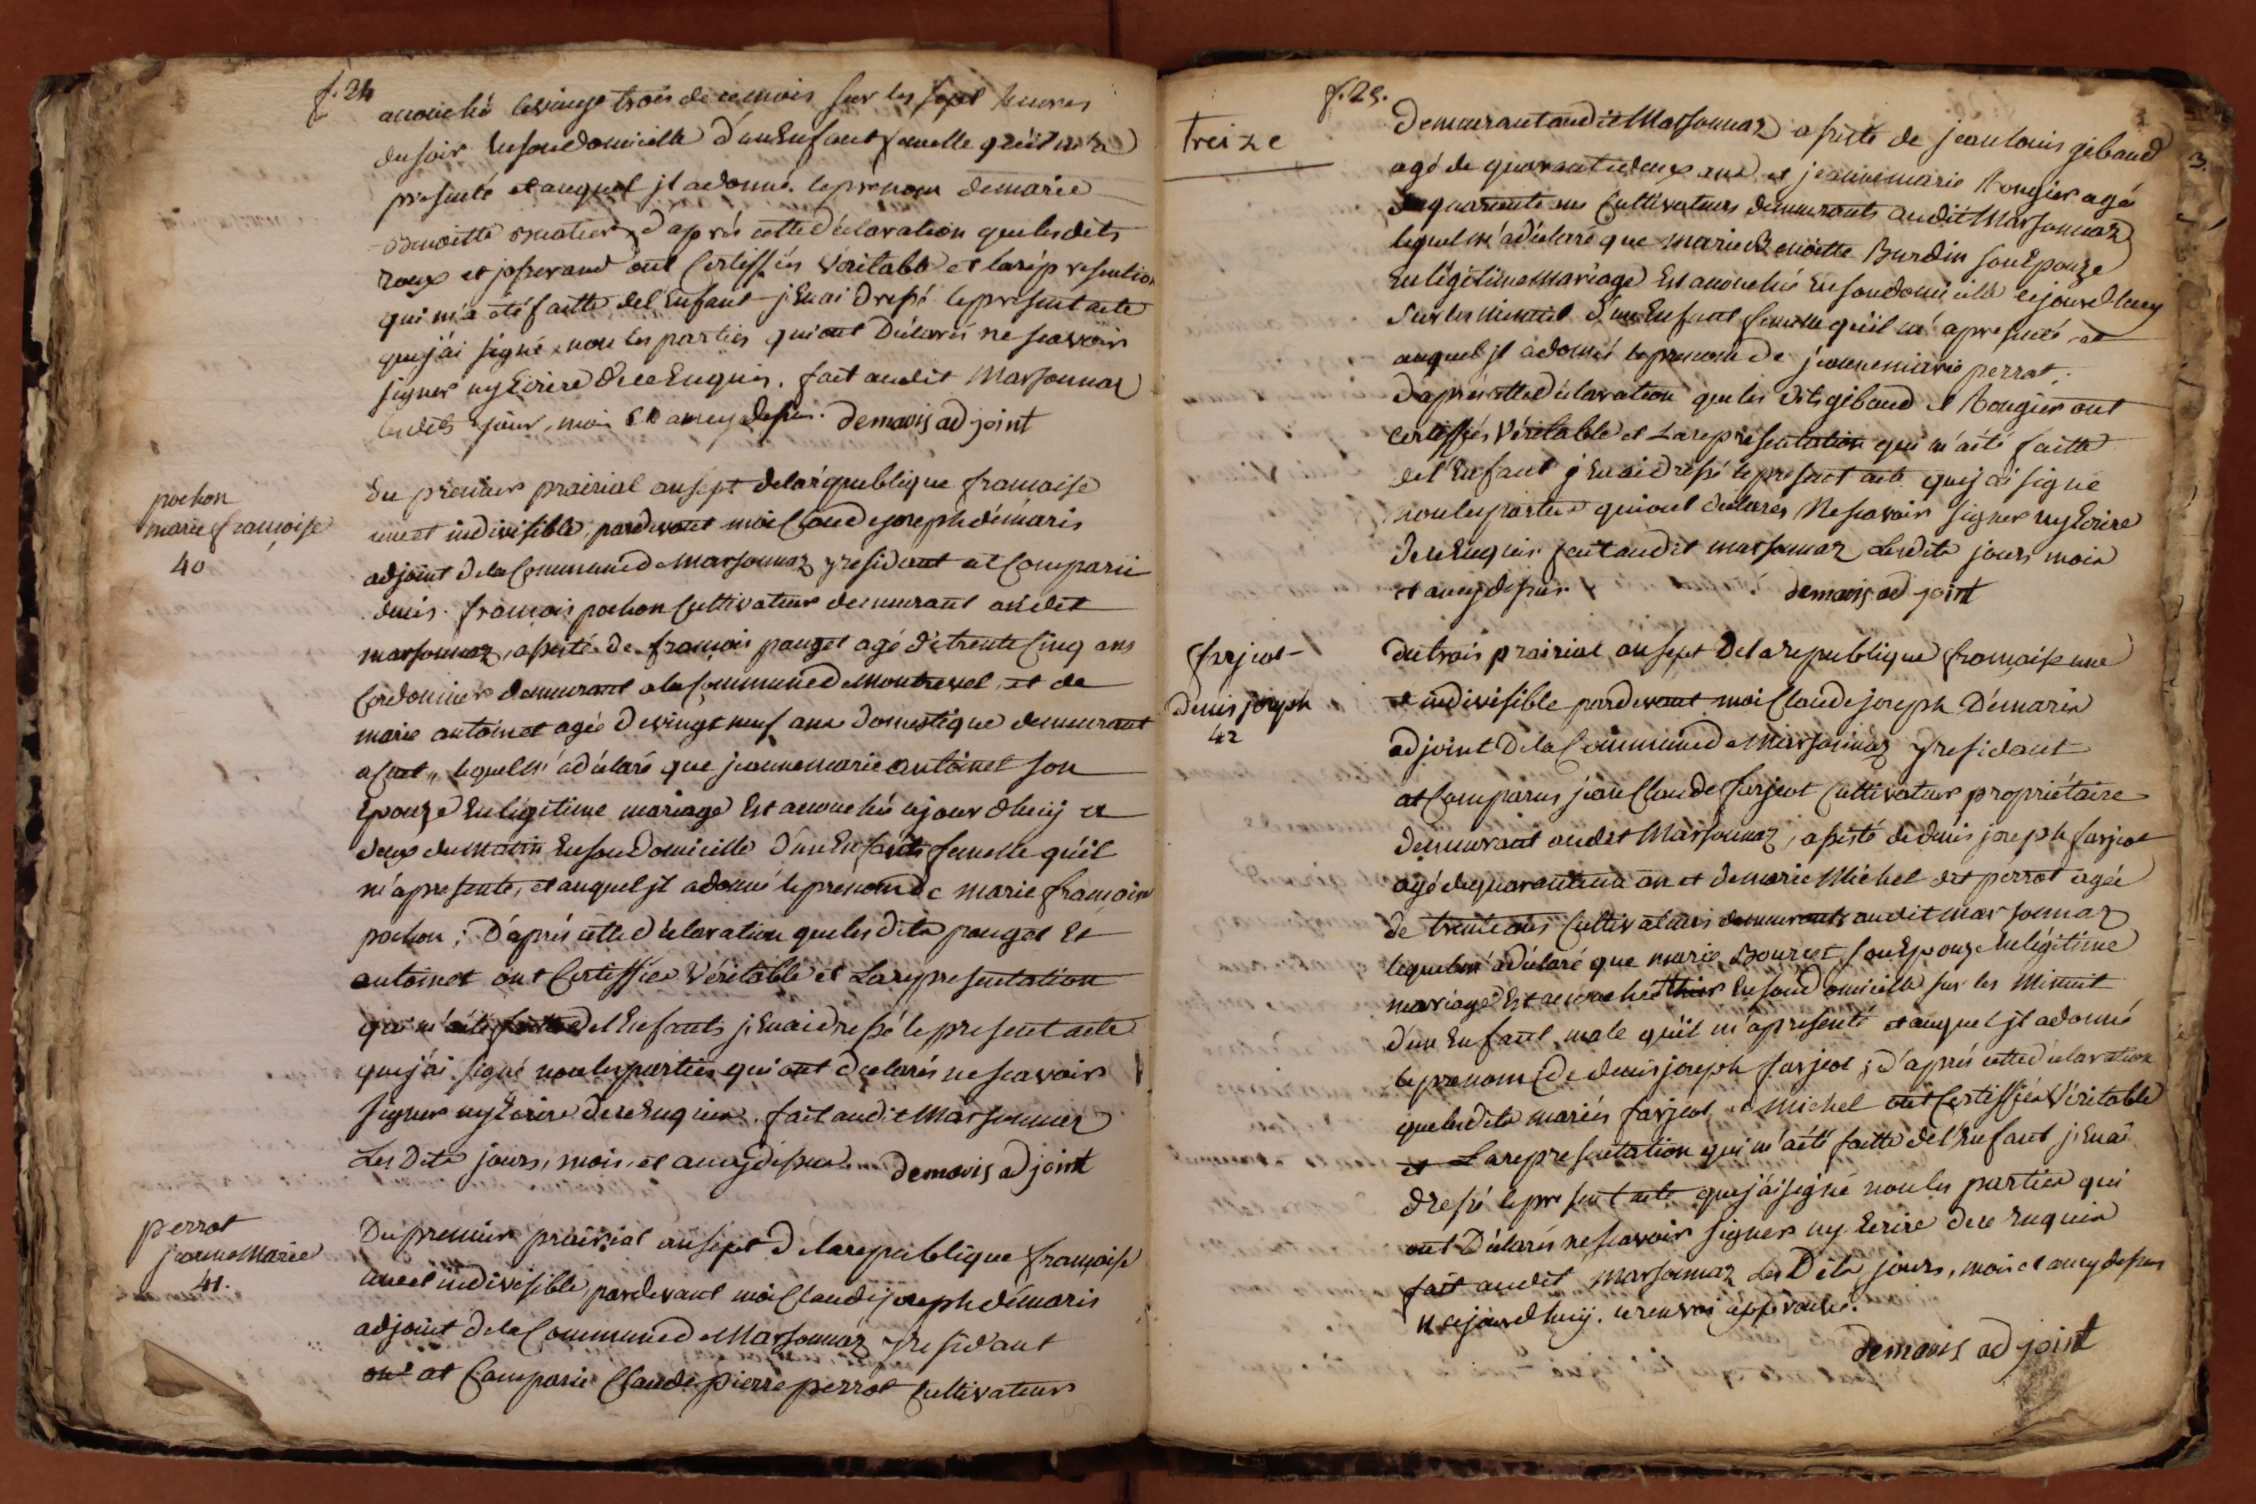 f. 24
accouché levingt trois de ce mois sur les sept heures
du soir en son domicille d'un Enfant femelle qu'il m'a
presenté et auquel jl adonné le prénom de marie
d'après cette déclaration que les dits
roux et josserand ont Certiffiés Véritable et larépresention
qui m'a été faitte del'Enfant j'Enai dressé le present acte
que j'ai signé, non les parties qui ont Déclarés ne scavoir
signer ny Ecrire de ce Enquis. fait audit Marsonnaz
lesdits jour, mois et an cy dessus. demaris adjoint
pochon
marie françoise
40
Du premier prairial an sept delarépublique française
une et indivisible, pardevant moi Claude joseph démaris
adjoint dela Commune de Marsonnaz y residant at Comparu
denis françois pochon Cultivateur demeurant audit
marsonnaz, assisté de françois pauget agé de trente Cinq ans
Cordonnier demeurant ala Commune de Montrevel, et de
marie antoinet agée de vingt neuf ans Domestique demeurant
lequel m'adéclaré que jeanne marie antoinet son
Epouze En légitime mariage Est accouchée cejourdhuy a
deux du matin En son Domicille d'un Enfants femelle qu'il
m'a presenté, et auquel jl adonné le prénom de marie françoise
pochon; D'après cette déclaration que les dits pauget Et
antoinet ont Certiffiés Véritable et La representation
qui m'a été faitte del Enfants j'Enai dressé le present acte
que j'ai signé non les parties qui ont déclarés ne scavoir
signer ny Ecrire de ce Enquis. fait audit Marsonnaz
Les Dits jours, mois, et an cy dessus. demaris adjoint
perrot
jeanne Marie
41.
Du premier prairial an sept Delarepublique française
une et indivisible, pardevant moi Claude joseph démaris
adjoint dela Commune de Marsonnaz y residant
at Comparu Claude pierre perrot Cultivateur
f. 25.
Treize
3.
demeurant audit Marsonnaz assisté de jean louis gibaud
agé de quarante deux ans et jeanne marie Rongier agé
de quarente ans Cultivateurs demeurants audit Marsonnaz
lequel m'adéclaré que marie Benoitte Burdin son Epouze
En légitime mariage Est accouchée En son domicille cejourdhuy
Sur les minuit d'un Enfant femelle qu'il m'a presenté, et
auquel jl adonné le prenom de jeanne marie perrot;
D'après cette déclaration que les Dits gibaud et Rongier ont
Certiffiés Véritable et La representation qui m'a été faitte
del'Enfant j'Enai dressé le present acte que j'ai signé
non les parties qui ont déclarés Ne scavoir signer ny Ecrire
de ce Enquis fait audit marsonnaz Lesdits jours mois
et an cy dessus demaris adjoint
farjeot
Denis joseph
42
du trois prairial an sept Delarepublique française une
et indivisible pardevant moi Claude joseph Démaris
adjoint dela Commune de Marsonnaz y residant
at Comparus jean Claude farjeot Cultivateur propriétaire
demeurant audit Marsonnaz, assisté de denis joseph farjeot
agé de quarante un an et de marie Michel dit perrot agée
de trente ans Cultivateurs demeurants audit marsonnaz
lequel m'adéclaré que marie Bouvet son Epouze En légitime
mariage Est accouchée hier En son domicille sur les Minuit
d'un Enfant, male qu'il m'a presenté et auquel jl adonné
le prenom De denis joseph farjeot; d'après cette déclaration
que lesdits mariés farjeot, et Michel ont Certiffiés Véritable
et La representation qui m'a été faitte del'Enfant j'Enai
dressé le present acte que j'ai signé non les parties qui
ont Déclarés ne scavoir signer ny Ecrire de ce Enquis
fait audit marsonnaz Les Dits jours, mois et an cy dessus
cejourdhuy. le renvoi approuvé.
demaris adjoint